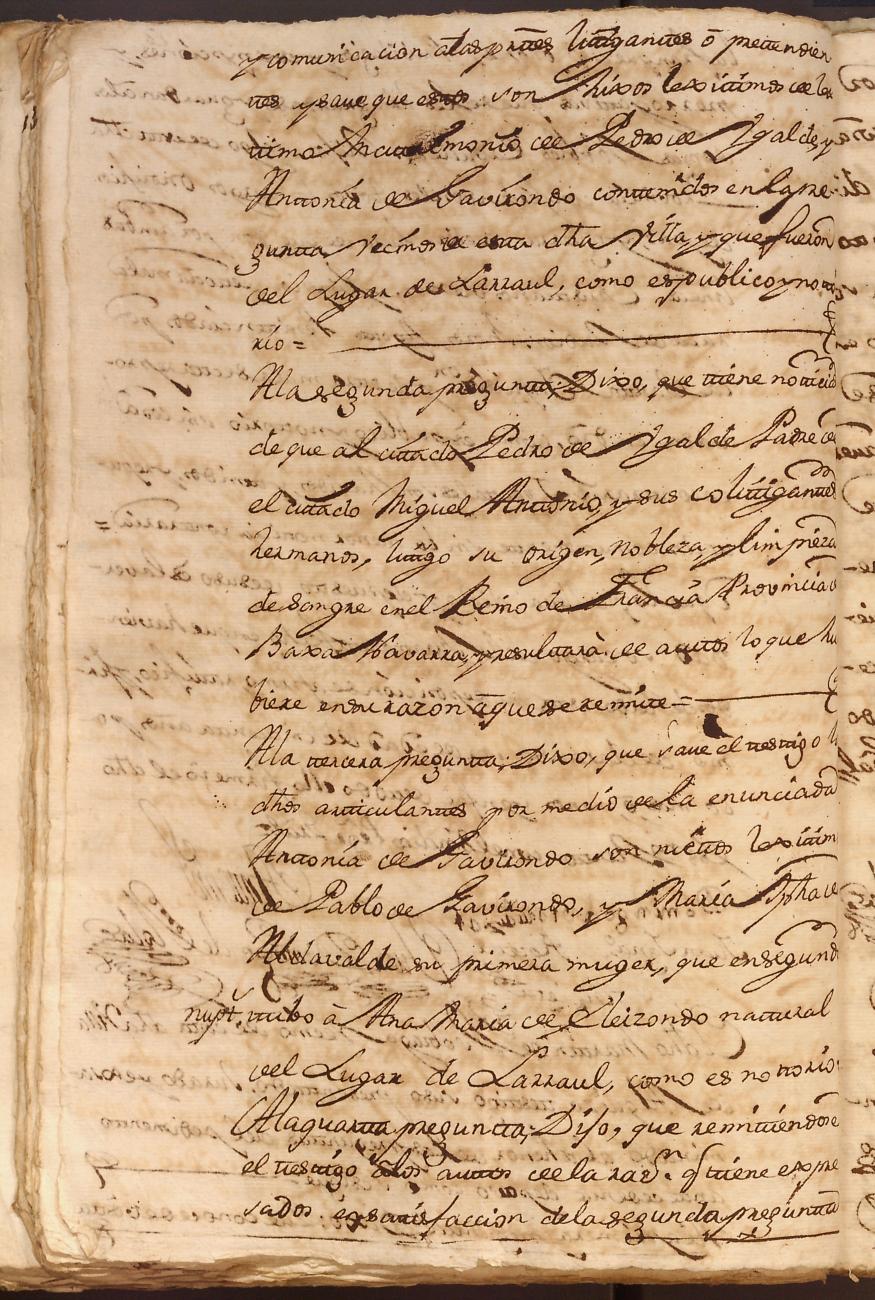 y comunicacion alas partes littigantes ô pretendien
tes y save que estos son hixos lexitimos de le
timo Matrimonio de Pedro de Ygalde, y
Antonia de Gavirondo contenidos en la pre
gunta vecinos de esta dha Villa, y que fueron
del Lugar de Larraul, como es publico y noto
rio =
Ala segunda pregunta; Dixo, que tiene noticia
de que al citado Pedro de Ygalde Padre de
el citado Miguel Antonio, y sus colitigantes
hermanos, tuvo su origen, nobleza y limpieza
de sangre en el Reino de Francia Provincia
Baxa Navarra, y resultarà de autos lo que hu
biere en su razon â que se remite =
Ala tercera pregunta; Dixo, que save el testigo
dhos articulantes por medio de la enunciada
Antonia de Gavirondo son nietos lexitim
de Pablo de Gavirondo, y Maria
Aldavalde su primera muger, que en segund
nupt. tubo â Ana Maria de Eleizondo natural
del Lugar de Larraul, como es notorio
Ala quarta pregunta; Dijo, que remitiendose
el testigo âlos autos de la razn. q tiene expre
sados en satisfaccion de la segunda pregunta